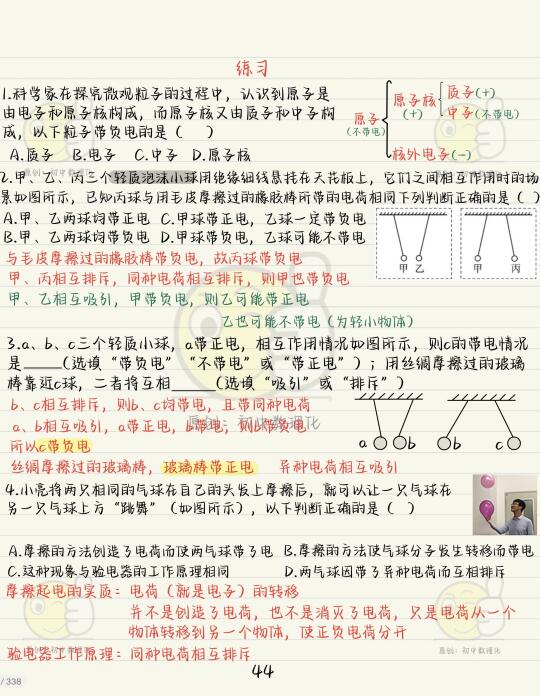 练习
1.科学家在探究微观粒子的过程中，认识到原子是
由电子和原子核构成，而原子核又由质子和中子构
成，以下粒子带负电的是（　）
A.质子 B.电子 C.中子 D.原子核
原子
(不带电)
原子核
(+)
质子(+)
中子(不带电)
核外电子(-)
2.甲、乙、丙三个轻质泡沫小球用绝缘细线悬挂在天花板上，它们之间相互作用时的场
景如图所示，已知丙球与用毛皮摩擦过的橡胶棒所带的电荷相同下列判断正确的是（　）
A.甲、乙两球均带正电 C.甲球带正电，乙球一定带负电
B.甲、乙两球均带负电 D.甲球带负电，乙球可能不带电
甲 乙
甲 丙
与毛皮摩擦过的橡胶棒带负电，故丙球带负电
甲、丙相互排斥，同种电荷相互排斥，则甲也带负电
甲、乙相互吸引，甲带负电，则乙可能带正电
乙也可能不带电（为轻小物体）
3.a、b、c三个轻质小球，a带正电，相互作用情况如图所示，则c的带电情况
是____(选填“带负电”“不带电”或“带正电”)；用丝绸摩擦过的玻璃
棒靠近c球，二者将互相_____(选填“吸引”或“排斥”)
b、c相互排斥，则b、c均带电，且带同种电荷
a、b相互吸引，a带正电，b带电，则b带负电
所以c带负电
丝绸摩擦过的玻璃棒，玻璃棒带正电 异种电荷相互吸引
a b
b c
4.小亮将两只相同的气球在自己的头发上摩擦后，就可以让一只气球在
另一只气球上方“跳舞”（如图所示），以下判断正确的是（　）
A.摩擦的方法创造了电荷而使两气球带了电 B.摩擦的方法使气球分子发生转移而带电
C.这种现象与验电器的工作原理相同 D.两气球因带了异种电荷而互相排斥
摩擦起电的实质：电荷（就是电子）的转移
并不是创造了电荷，也不是消灭了电荷，只是电荷从一个
物体转移到另一个物体，使正负电荷分开
验电器工作原理：同种电荷相互排斥
原创：初中数理化
44
/ 338